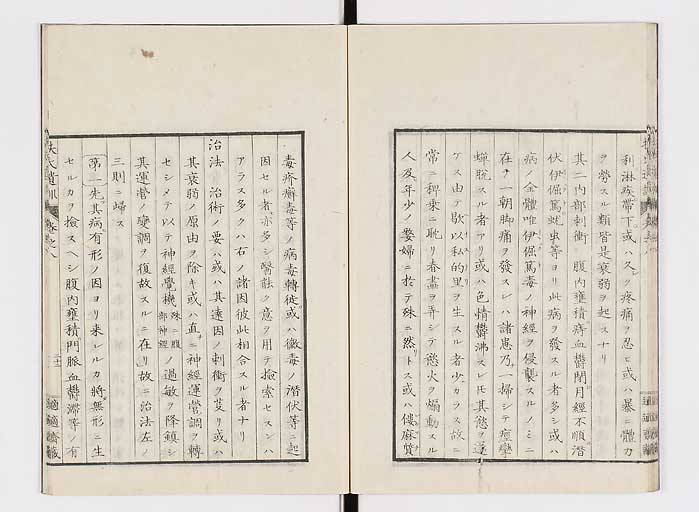 利淋疾帶下或ハ久ク疼痛ヲ忍ヒ或ハ暴ニ體力
ヲ勞スル類皆是衰弱ヲ起スナリ
其二内部刺衝 腹内壅積瘀血鬱閉月經不順潛
伏伊倔篤蚘虫等ヨリ此病ヲ發スル者多シ或ハ
病ノ全體唯伊倔篤毒ノ神經ヲ侵襲スルノミニ
在テ一朝脚痛ヲ發スレハ諸患乃一掃シテ痙攣
蟬脱スル者アリ或ハ色情鬱沸スレ𪜈其慾ヲ遂
ケス由テ歇以私的里ヲ生スル者少カラス故ニ
常ニ稗乗ニ耽リ春畫ヲ弄シテ慾火ヲ煽動スル
人及年少ノ嫠婦ニ於テ殊ニ然トス或ハ僂麻質
毒疥癬毒等ノ病毒轉徙或ハ黴毒ノ潛伏等ニ起
因セル者亦多シ醫能ク意ヲ用テ撿索セスンハ
アラス多クハ右ノ諸因彼此相合スル者ナリ
治法 治術ノ要ハ或ハ其遠因ノ刺衝ヲ芟リ或ハ
其衰弱ノ原由ヲ除キ或ハ直ニ神經運營調ヲ轉
セシメテ以テ神經覺機殊ニ腹部神經ノ過敏ヲ降鎮シ
其運營ノ變調ヲ復故スルニ在リ故ニ治法左ノ
三則ニ歸ス
第一先其病有形ノ因ヨリ来レルカ將無形ニ生
セルカヲ撿スヘシ腹内壅積門脈血鬱滯等ノ有
扶氏遺訓 卷之八
二十
適適齋藏